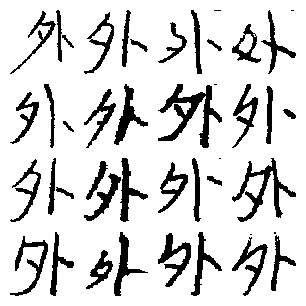 外外外外
外外外外
外外外外
外外外外